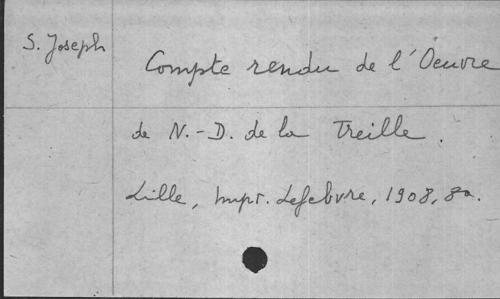 S. Joseph
Compte rendu de l'Oeuvre
de N.-D. de la Treille.
Lille, Impr. Lefebvre, 1908, 8º.